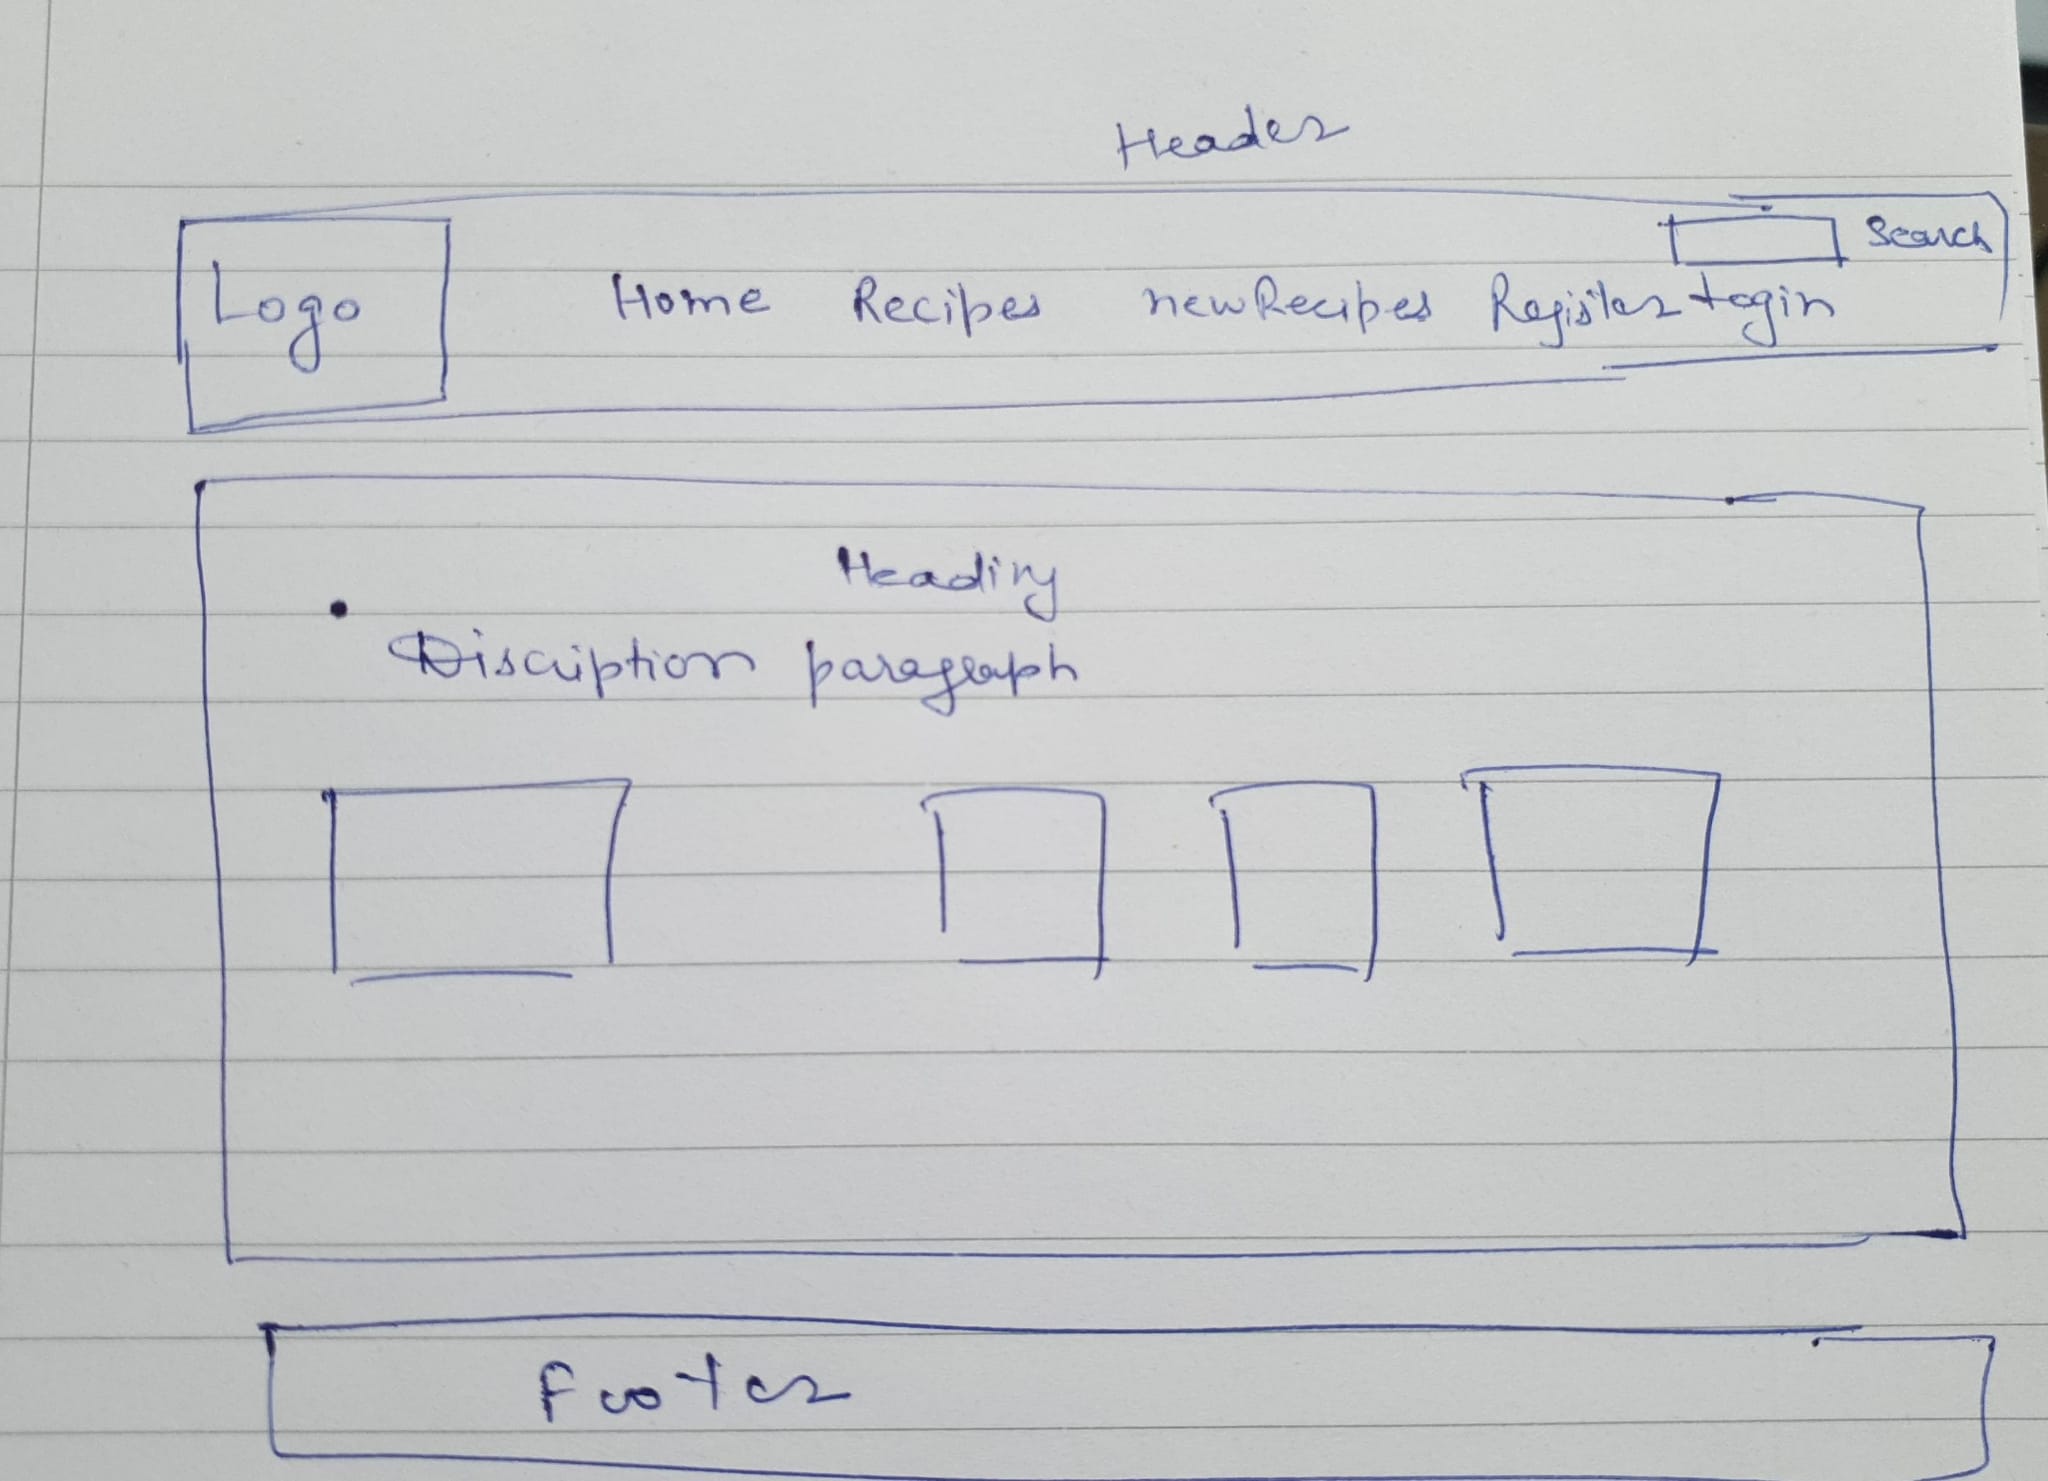 Header
Search
Logo Home Recipes newRecipes Register Login
Heading
Discription paragraph
Footer